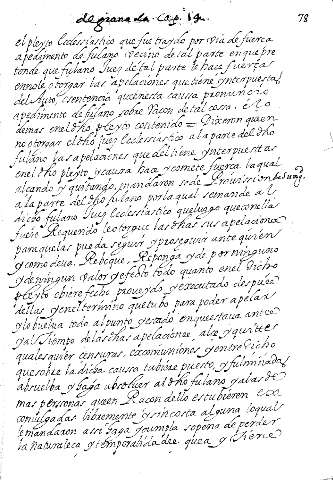 de granada. Cap. 19. 78
el pleyto Ecclesiastico que fue traydo por via de fuerza
a pedimento de fulano vecino de tal parte en que pre
tende que fulano Juez de tal parte le hace fuerza
en no le otorgar las apelaciones que tiene ynterpuestas
del Auto, o sentencia que en esta causa pronuncio
a pedimento de fulano sobre racon de tal cosa, e lo
demas en el dho pleyto contenido = Dixeron que en
no otorgar el dho Juez Ecclesiastico a la parte del dho
fulano las apelaciones que del tiene ynterpuestas
en el dho pleyto y causa haze y comete fuerza, la qual
alcando y quitando, mandaron se de Provission
a la parte del dho fulano por la qual se mande al
dicho fulano Juez Ecclesiastico que luego que con ella
fuere Requerido le otorgue las dhas sus apelaciones
para que las pueda seguir y proseguir ante quien
y como deva. Reboque, Reponga y de por ninguno
y de ningun valor y efecto todo quanto en el dicho
pleyto obiere fecho proveydo, y executado despues
dellas y en el termino que tubo para poder apelar
y lo buelva todo al punto y estado en que estava antes
y al tiempo de las dhas apelaciones, alce y quite
qualesquier censuras, excomuniones y entredicho
que sobre la dicha causa tubiere puesto, y fulminado
absuelva y haga absolver al dho fulano y a las de
mas personas que en Racon dello estubieren exco
mulgadas libremente y sin costa alguna lo qual
le mandaron assi haga y cumpla so pena de perder
la naturaleza y temporalidades que a y tiene